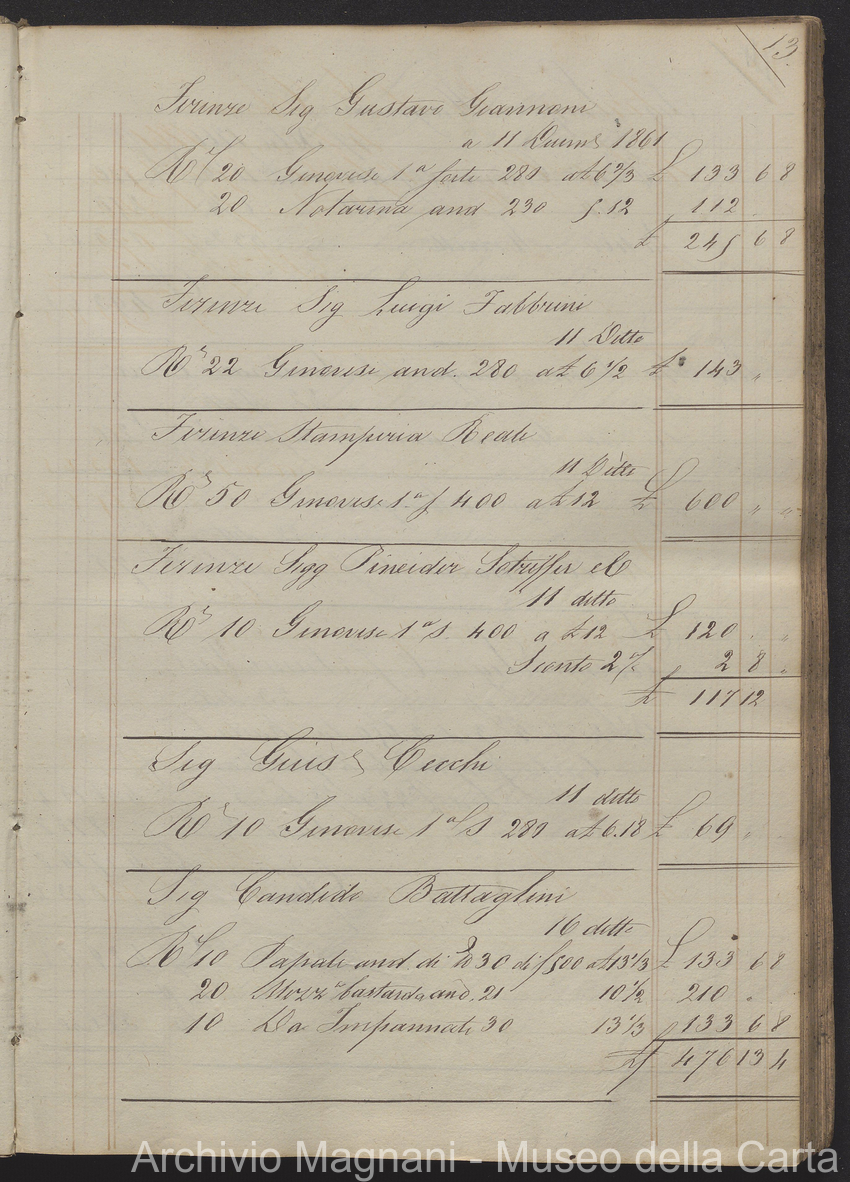 13.
Firenze Sig Gustavo Giannoni
a 11 Dicem 1861
Re 20 Genovese 1a forte 280 a £ 6 2/3 £ 133 6 8
20 Notarina and 230 5.12 112
£ 245 6 8
Firenze Sig Luigi Fabbrini
11 Detto
Re 22 Genovese and. 280 a £ 6 1/2 £ 143 "
Firenze Stamperia Reale
11 Detto
Re 50 Genovese 1a f 400 a £ 12 £ 600 " "
Firenze Sigg Pineider eC
11 detto
Re 10 Genovese 1a s. 400 a £ 12 £ 120 " "
Sconto 2% 2 8 "
£ 117 12
Sig Gius Cecchi
11 detto
Re 10 Genovese 1a S 280 a £ 6.18 £ 69 "
Sig Candido Battaglini
16 detto
Re 10 Papale and. di 30 di f 500 a £ 13 1/3 £ 133 6 8
20 Mezza bastarda and. 21 10 1/2 210 "
10 Da Impannate 30 13 1/3 133 6 8
£ 476 13 4
Archivio Magnani - Museo della Carta